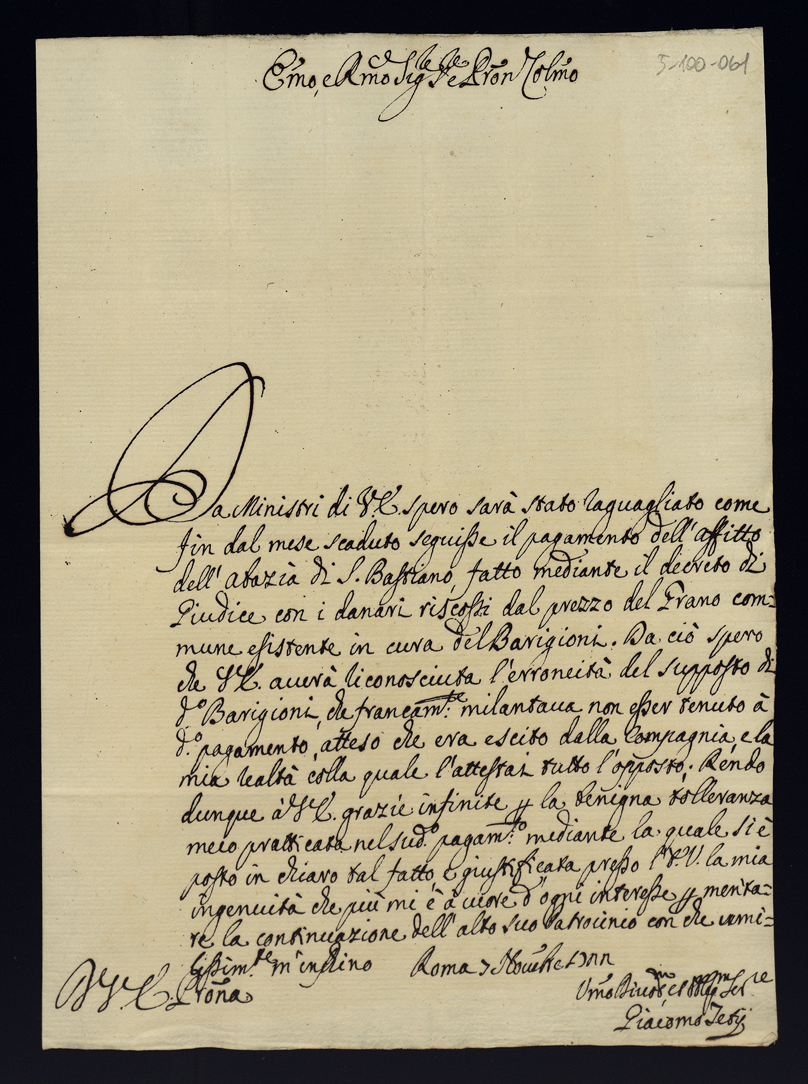 5-100-061
Em̃o, e Rm̃o Sig.re Sig.re e Pron Colm̃o
Da Ministri di V.E. spero sarà stato raguagliato come
fin dal mese scaduto seguisse il pagamento dell'affitto
dell'abazia di S. Bastiano, fatto mediante il decreto di
Giudice con i danari riscossi dal prezzo del Grano com=
mune esistente in cura del Barigioni. Da ciò spero
che V.E. auerà riconosciuta l'erroneità del supposto di
d.o Barigioni, che francam.te milantaua non esser tenuto à
d.o pagamento, atteso che era escito dalla Compagnia, e la
mia realtà colla quale l'attestai tutto l'opposto. Rendo
dunque à V.E. grazie infinite p la benigna tolleranza
meco pratticata nel sud.o pagam.to mediante la quale si è
posto in chiaro tal fatto e giustificata presso l'E.V. la mia
ingenuità che più mi è à cuore d'ogni interesse p merita=
re la continuazione dell'alto suo Patrocinio con che umi=
lissim.te m'inchino Roma 7 Nou̅bre
D V.E. Pron̄a
Giacomo